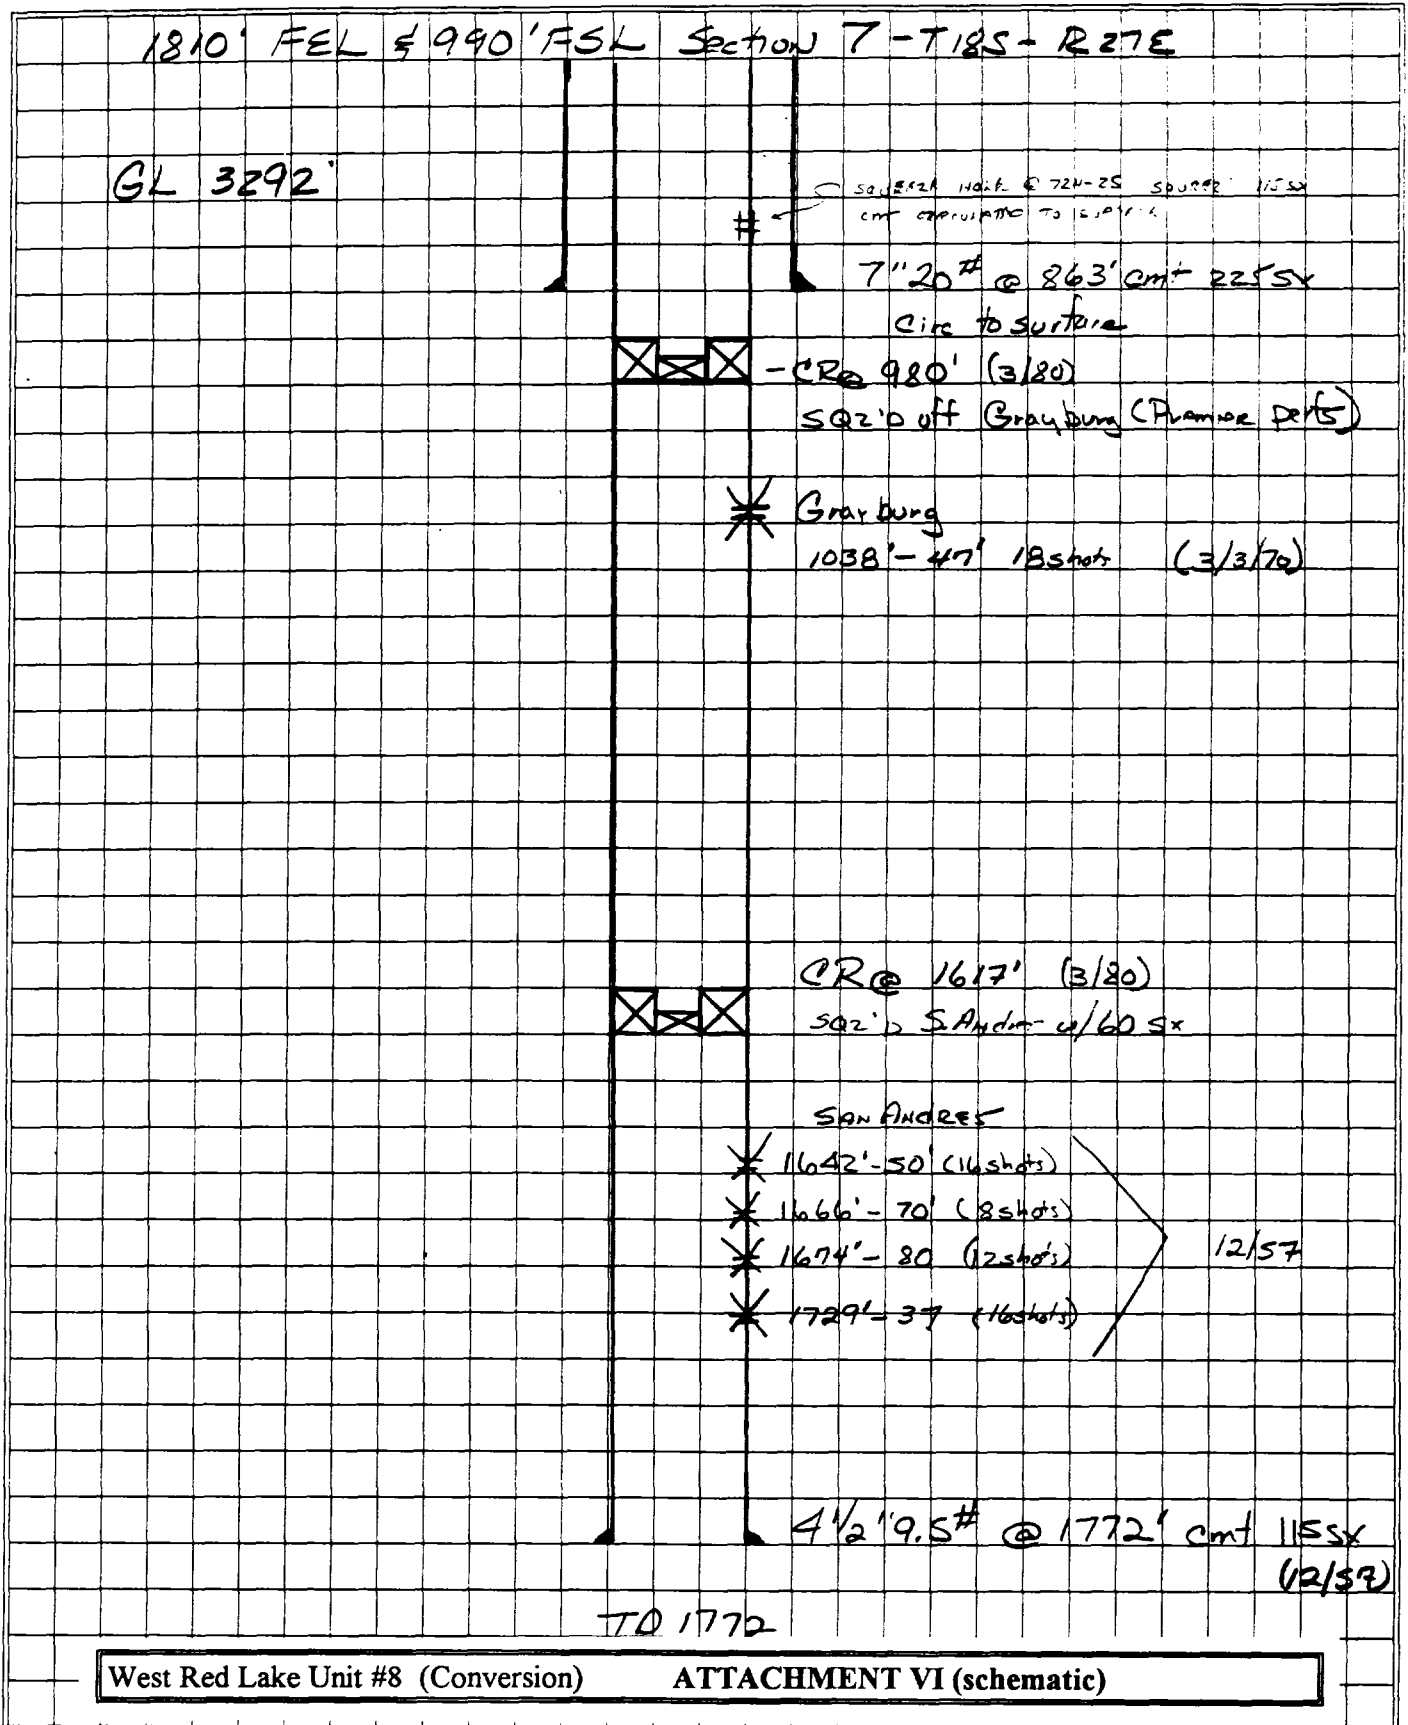 1810' FEL & 990' FSL Section 7 - T18S - R27E
GL 3292'
squeeze hole @ 724-25 115 sx
cmt to
7" 20# @ 863' cmt 225 sx
Circ to surface
- CR @ 980' (3/80)
SQZ'D off Grayburg (Premier perfs)
Grayburg
1038' - 47' 18 shots (3/3/70)
CR @ 1617' (3/80)
SQZ'D S. Andres w/60 sx
SAN ANDRES
1642' - 50' (16 shots)
1666' - 70' (8 shots)
1674' - 80 (12 shots)
1729' - 37 (16 shots)
12/57
4 1/2" 9.5# @ 1772' cmt 115 sx
(12/57)
TD 1772
West Red Lake Unit #8 (Conversion) ATTACHMENT VI (schematic)